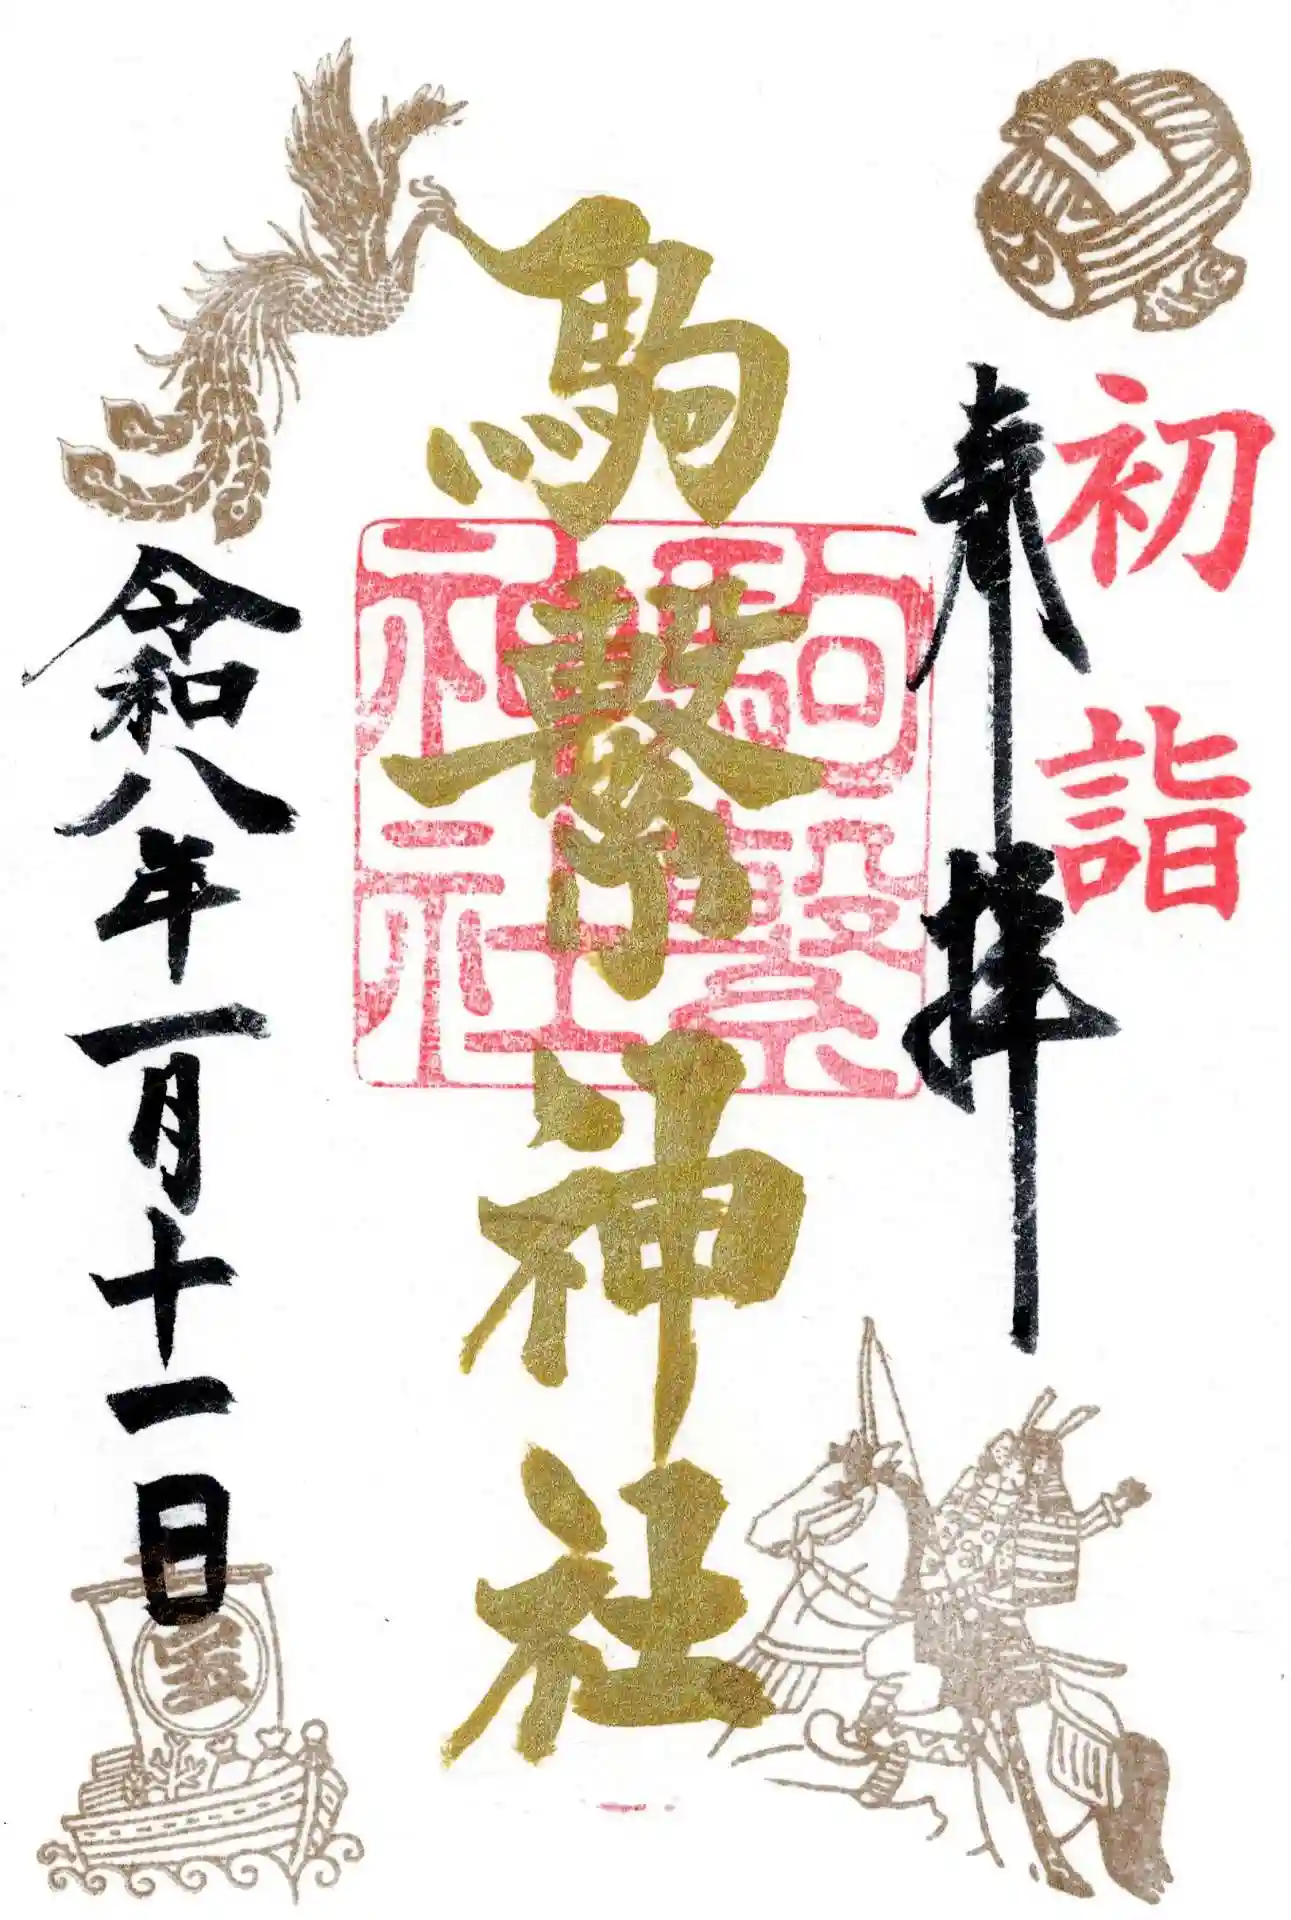 初詣
奉拝
駒繋神社
駒繋神社
令和八年一月十一日
宝